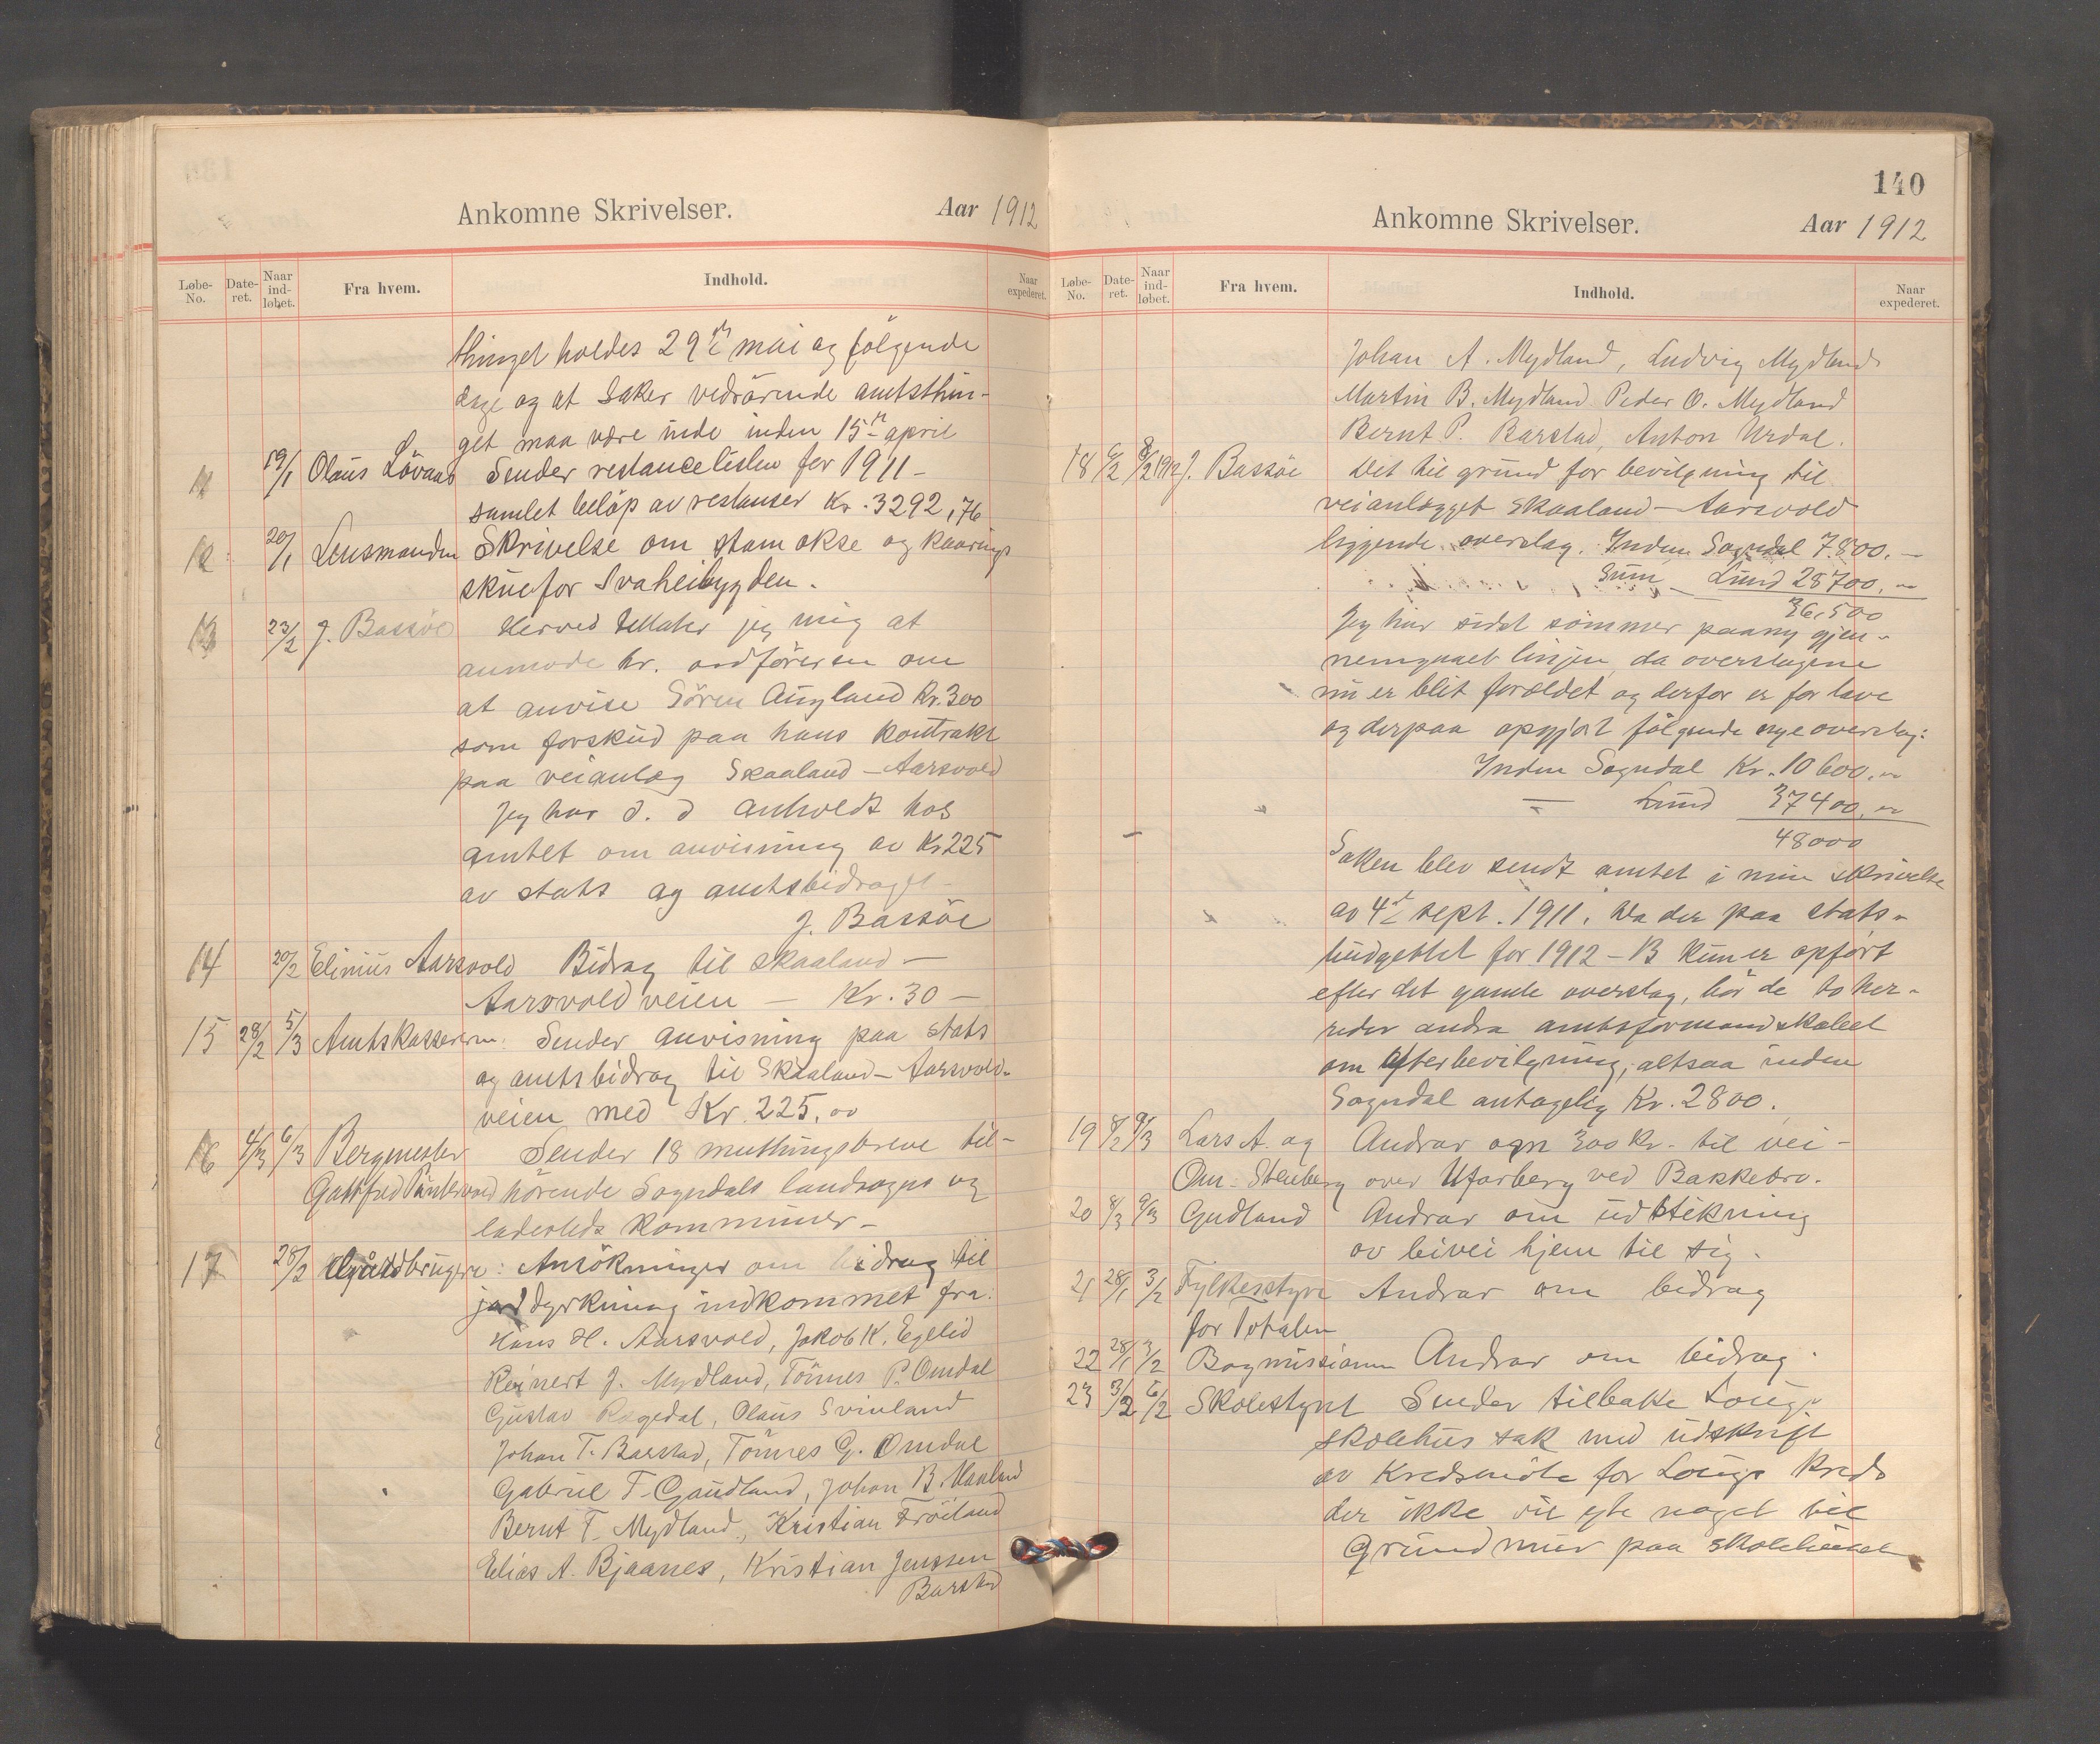 Ankomne Skrivelser. Aar 1912
Løbe-No. Date-ret. Naar ind-løbet. Fra hvem. Indhold. Naar expederet.
thinget holdes 29de mai og følgende
dage og at saker vedrørende amtsthin-
get maa være inde inden 15de april
11 19/1 Olaus Løvaas Sender restancelisten for 1911 –
samlet beløp av restanser Kr. 3292,76
12 20/1 Lensmanden Skrivelse om stamokse og kaarings
skue for Svaheibygden.
13 23/2 J. Bassøe Herved tillater jeg mig at
anmode hr. ordføreren om
at anvise Sören Aügland Kr. 300
som forskud paa hans kontrakt
paa veianlæg Skaaland – Aarsvold
Jeg har d. d anholdt hos
amtet om anvisning av Kr 225
av stats og amtsbidraget –
J. Bassøe
14 20/2 Elinius Aarsvold Bidrag til Skaaland –
Aarsvoldveien – Kr. 30 –
15 28/2 5/3 Amtskassereren: Sender anvisning paa stats
og amtsbidrag til Skaaland – Aarsvold-
veien med Kr. 225,00
16 4/3 6/3 Bergmester Sender 18 muthingsbreve til-
hørende Sogndals landsogns og
ladesteds kommuner –
17 28/2 Gårdbrugere: Ansökninger om bidrag til
jorddyrkning indkommet fra:
Hans H. Aarsvold, Jakob K. Egelid
Reinert J. Mydland, Tönnes P. Omdal
Gustav Regedal, Olaus Svinland
Johan T. Barstad, Tönnes G. Omdal
Gabriel T. Gaudland, Johan B.
Bernt T. Mydland, Kristian Fröiland
Elias A. Bjaanes, Kristian Jenssen
Barstad
140
Ankomne Skrivelser. Aar 1912
Løbe-No. Date-ret. Naar ind-løbet. Fra hvem. Indhold. Naar expederet.
Johan A. Mydland, Ludvig Mydland
Martin B. Mydland Peder O. Mydland
Bernt P. Barstad, Anton Urdal.
18 6/2 8/2 1912 J. Bassøe Det til grund for bevilgning til
veianlægget Skaaland – Aarsvold
liggende overslag. Inden Sogndal 7800. –
Sum – Lund 28700. –
36,500
Jeg har sidst sommer paany gjen-
nemgaaet linjen, da overslagene
nu er blit forældet og derfor er for lave
og derpaa opgjort følgende nye overslag:
Inden Sogndal Kr. 10600. –
– Lund 37400. –
48000
Saken blev sendt amtet i min skrivelse
av 4de sept. 1911. Da der paa stats-
budgettet for 1912 – 13 kun er opført
efter det gamle overslag, bør de to her-
reder andra amtsformandskabet
om efterbevilgning, altsaa inden
Sogndal antagelig Kr. 2800.
19 8/2 9/3 Lars A. og Andrar om 300 Kr. til vei –
Om. Stenberg over Ufarberg ved Bakkebro.
20 8/3 9/3 Gudland Andrar om udstikning
av bivei hjem til sig.
21 28/1 3/2 Fylkesstyre Andrar om bidrag
for Totalen
22 28/1 3/2 Bogmissionen Andrar om bidrag.
23 3/2 6/2 Skolestyret Sender tilbake Lougs
skolehus sak med udskrift
av Kredsmöte for Lougs Kreds
der ikke vil yde noget til
Grundmur paa skolehuset